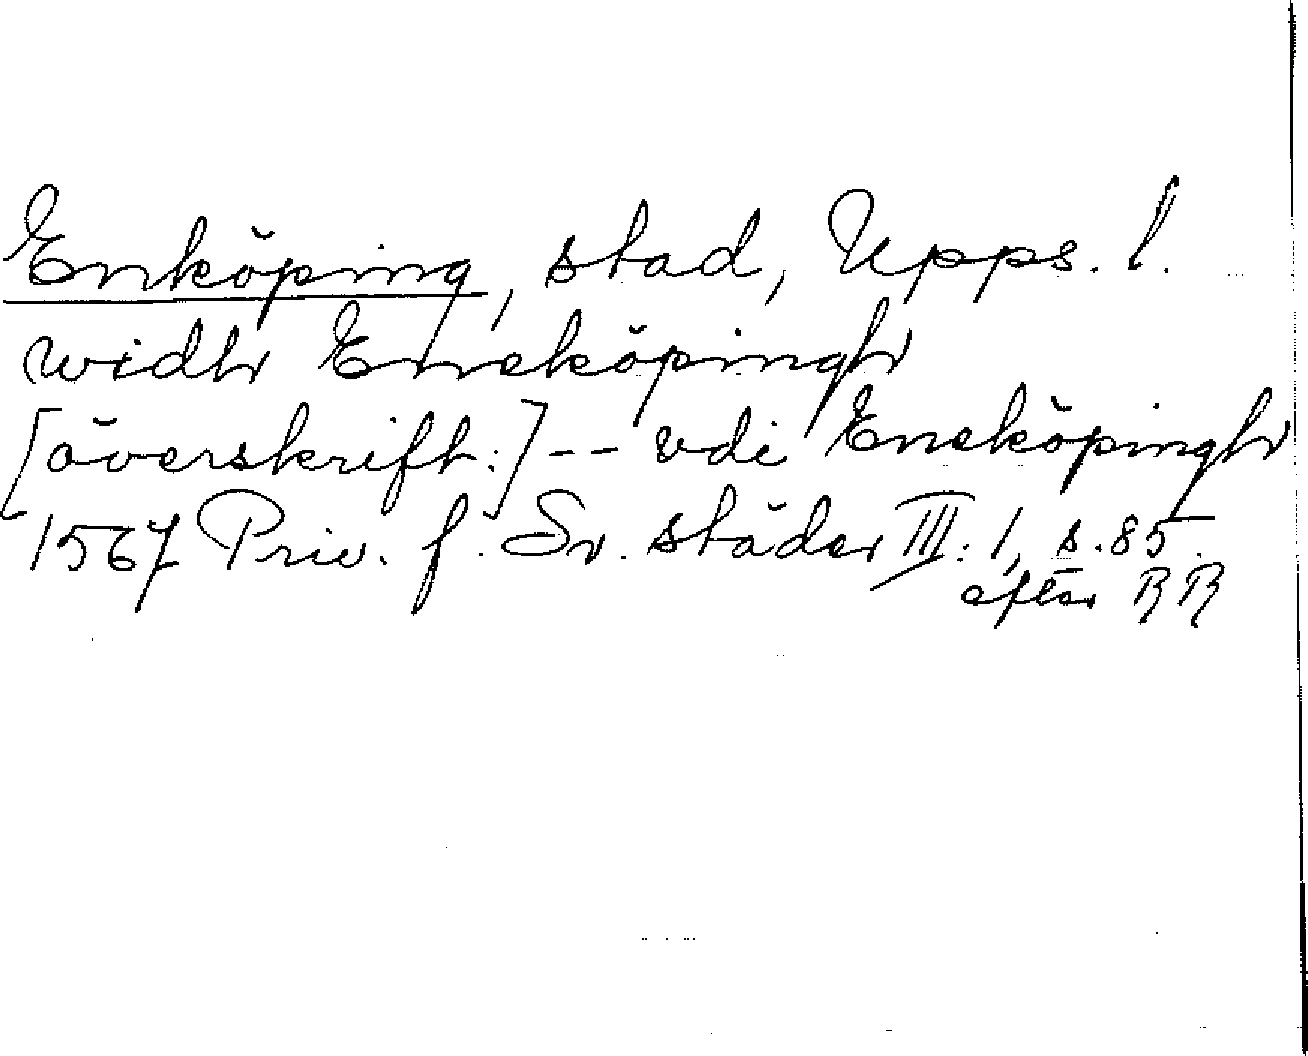 Enköping, stad, Upps. l.
widh Eneköpingh
[överskrift:] -- vdi Eneköpingh
1567 Priv. f. Sv. städer III: 1, s. 85.
efter RR